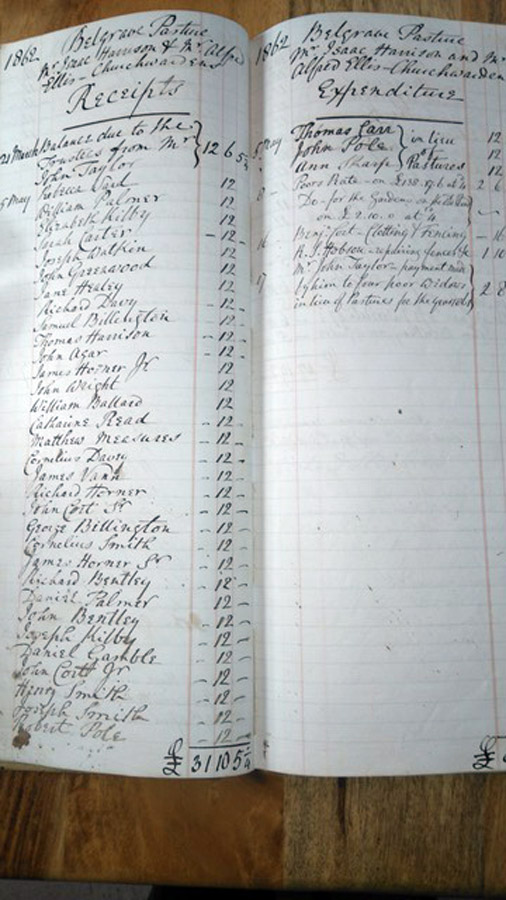 1862
Belgrave Pasture
Mr. Isaac Harrison & Mr. Alfred
Ellis - Churchwardens
Receipts
21 March Balance due to the
Trustees from Mr
John Taylor 12 6 5
5 May
William Palmer 12
Elizabeth Kilby 12
Sarah Carter - 12 -
Joseph Watkin 12
John Greenwood 12
Jane Henley 12
Richard Davy - 12 -
Samuel Billington 12
Thomas Harrison - 12 -
John Agar - 12 -
James Horner Jr 12
John Wright 12
William Ballard 12
Catharine Read - 12 -
Matthew Measures - 12 -
Cornelius Davy - 12 -
James Vann - 12 -
Richard Horner - 12 -
John Cott Sr - 12 -
George Billington - 12 -
Cornelius Smith - 12 -
James Horner Sr - 12 -
Richard Bentley - 12 -
Daniel Palmer 12 -
John Bentley - 12 -
Joseph Kilby - 12 -
Daniel Gamble - 12 -
John Cott Jr - 12 -
Henry Smith - 12 -
Joseph Smith - 12 -
Robert Pole - 12 -
£ 31 10 5
1862
Belgrave Pasture
Mr. Isaac Harrison and Mr
Alfred Ellis - Churchwarden
Expenditure
5 May Thomas Carr 12
John Pole in lieu of 12
Ann Sharpe Pastures 12
Poors Rate - on at 4 2 6
8 Do - for the Gardens
on £2.10.0 at 4
16 Clothing & Fencing - 16
R. J. Hobson - repairing fences &c 1 10
17 Mr John Taylor - payment made
by him to four poor Widows 2 8
in lieu of Pastures for the
£